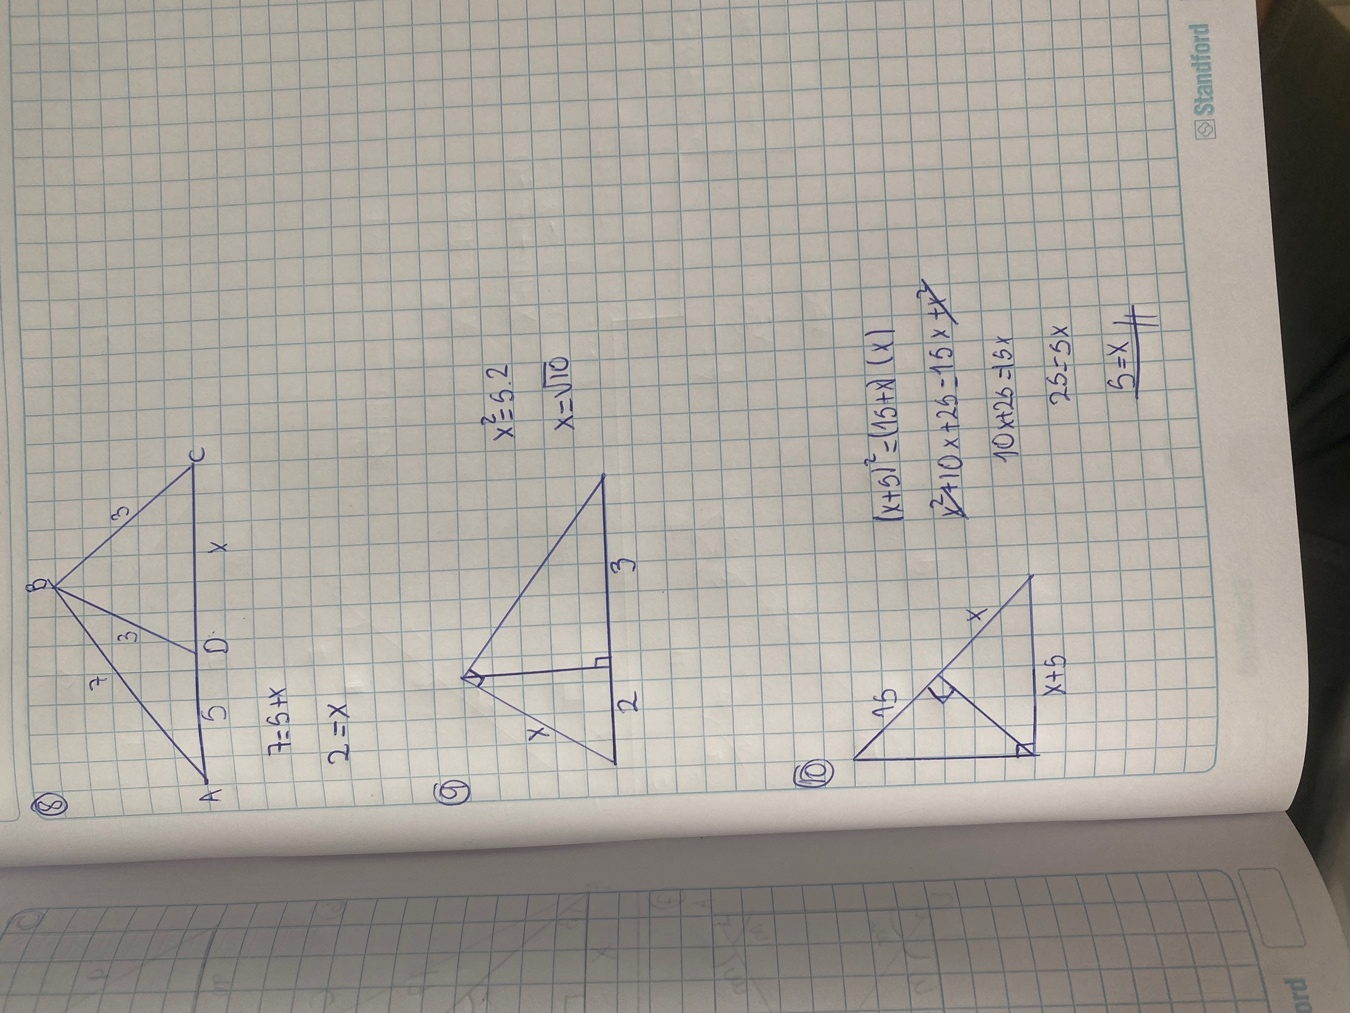 8
B
7
3
3
A
5
D
x
C
7=5+x
2=x
9
x
2
3
x²=5.2
x=√10
10
15
x
x+5
(x+5)²=(15+x)(x)
x²+10x+25=15x+x²
10x+25=15x
25=5x
5=x
Standford
ord